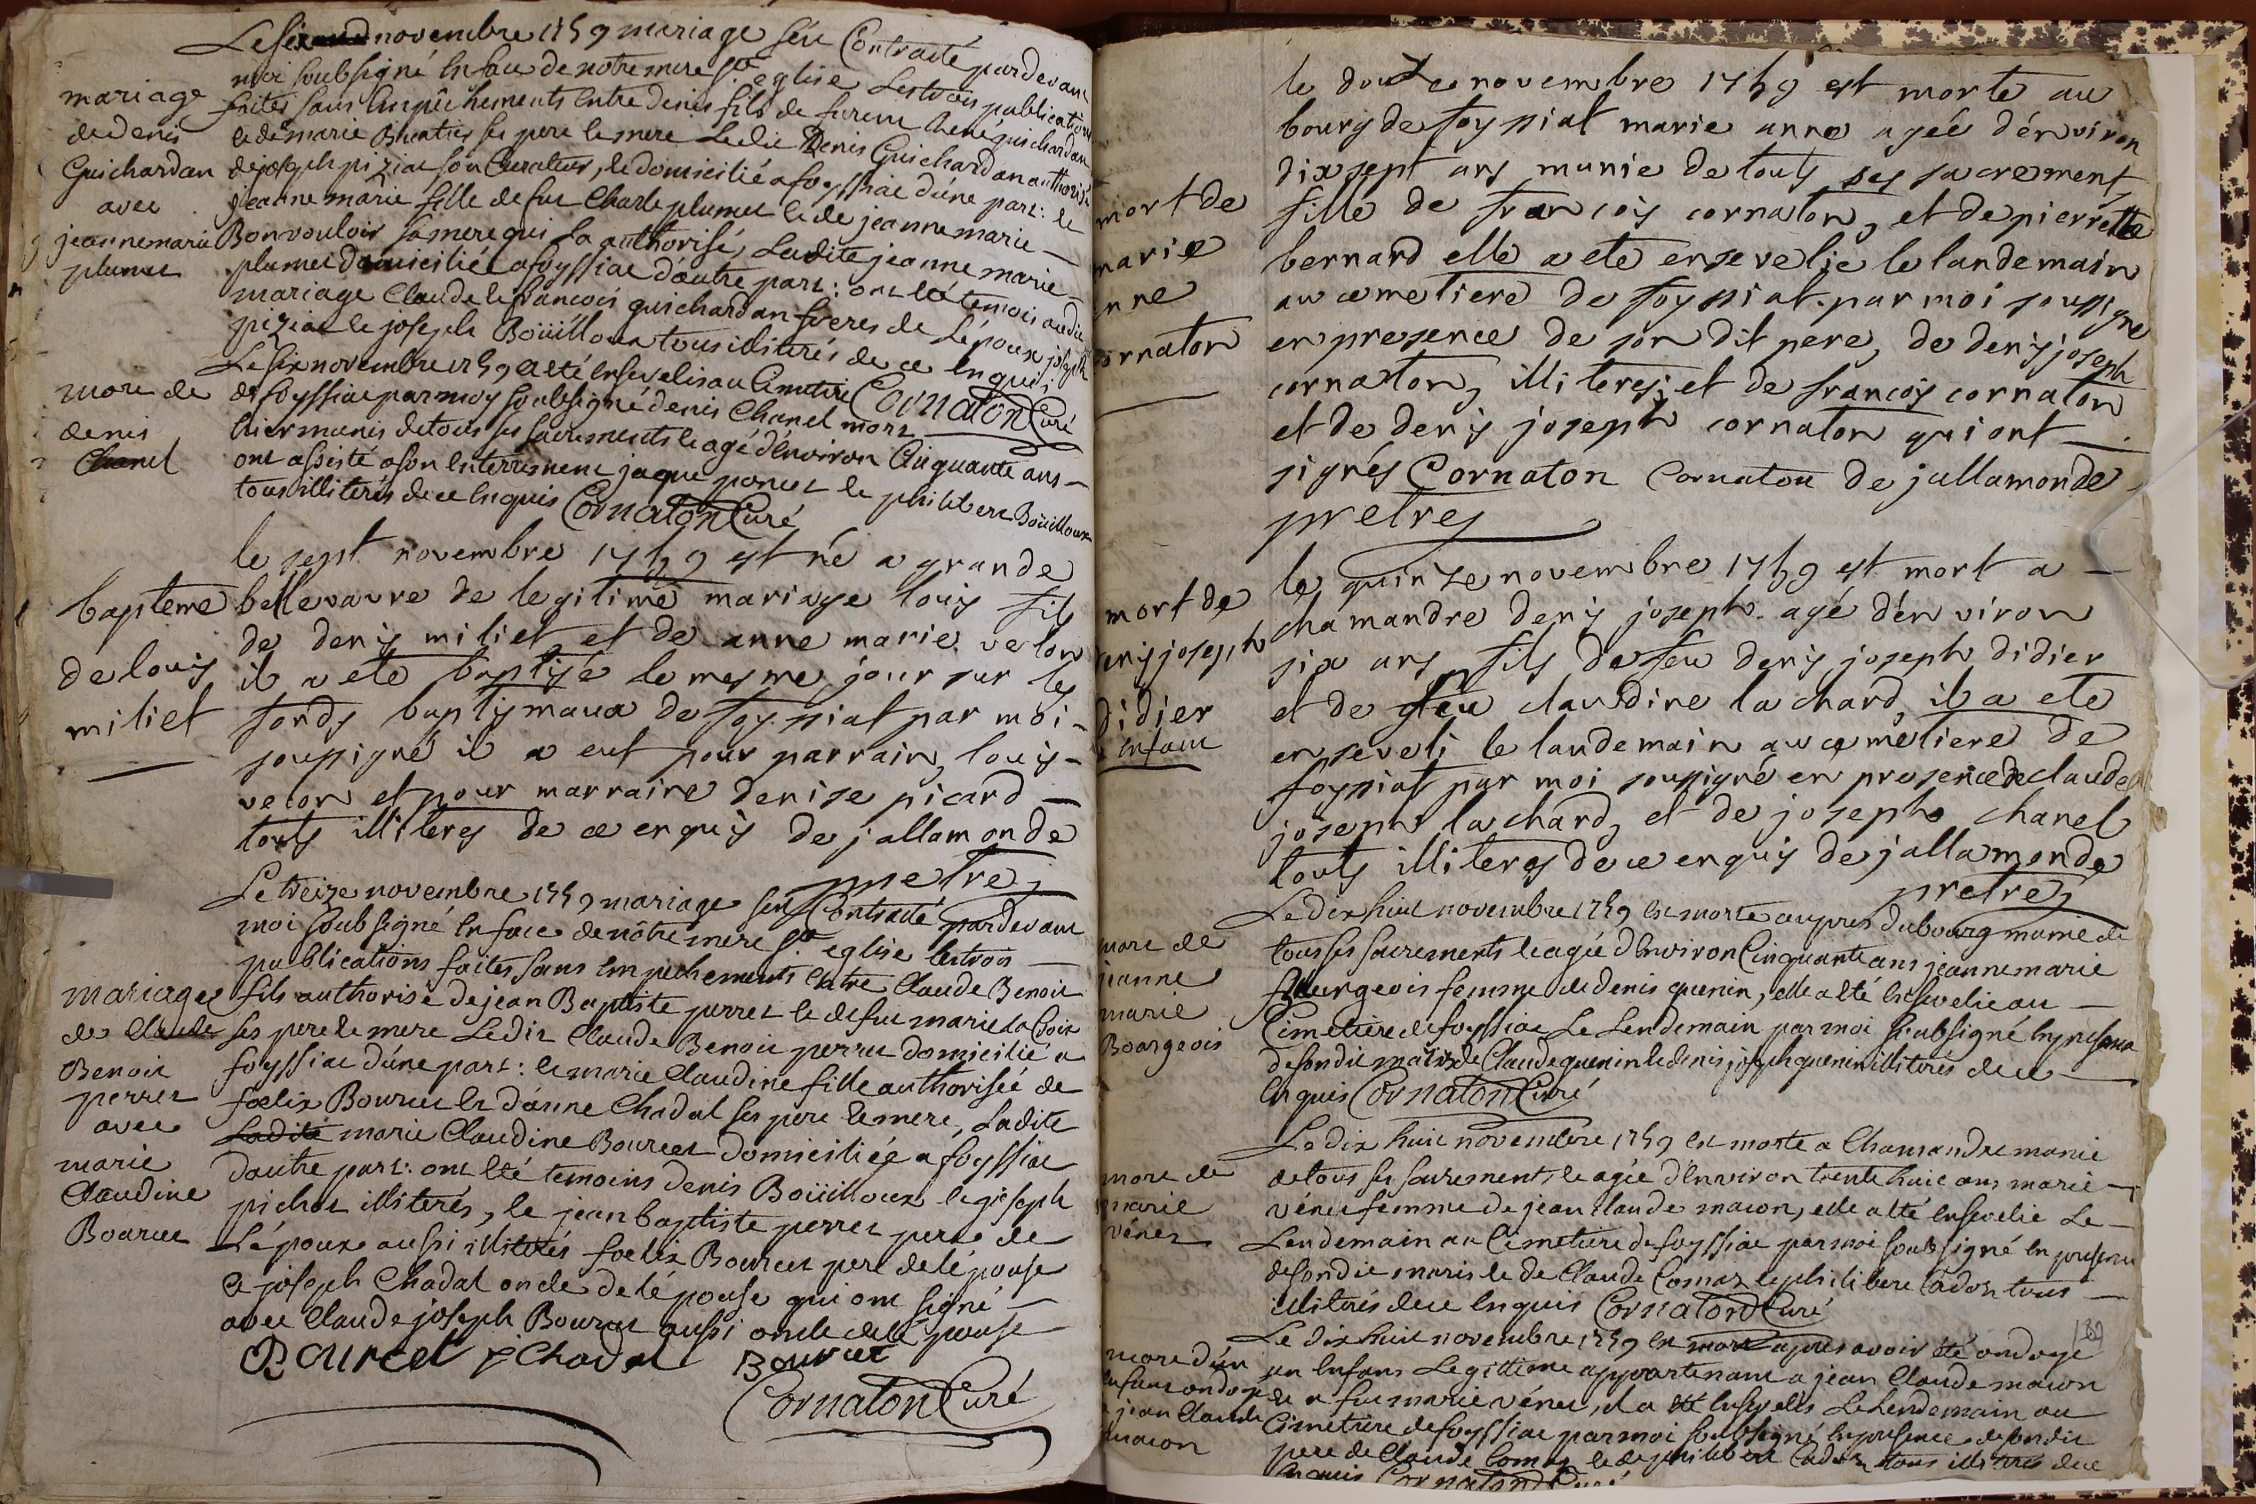 Le six novembre 1759 mariage fut Contracté pardevant
moi soubsigné en face de notre mere ste eglise Les trois publications
mariage
de denis
Guichardan
avec
jeanne marie
plumet
faites sans Empêchements entre denis fils de furent René guichardan
et de marie ses pere et mere Ledit Denis Guichardan authorisé
de joseph piziat son Curateur, et domicilié a foyssiat d'une part: et
jeanne marie fille de fut Charle plumet et de jeanne marie
Bonvouloir sa mere qui la authorisé, Ladite jeanne marie
plumet domiciliée a foyssiat d'autre part: ont été temois audit
mariage Claude et francois guichardan freres de L'époux joseph
piziat et joseph Boüilloux tous illiterés de ce Enquis
Cornaton Curé
mort de
denis
Chanel
Le six novembre 1759 a eté Enseveli au Cimetire
de foyssiat par moy soubsigné denis Chanel mort
hier munis de tous ses sacrements et agé d'Environ Cinquante ans
ont assisté a son Enterrement jaque poncet et philibert Boüilloux
tous illiterés de ce Enquis Cornaton Curé
bapteme
de louis
miliet
le sept novembre 1759 est né a grande
bellevavre de legitime mariage louis fils
de denis miliet et de anne marie velon
il a eté baptisé le mesme jour sur les
fonds baptismaux de foyssiat par moi
soussigné il a eut pour parrain, louis
velon et pour marraine denise picard
touts illiteres de ce enquis de jallamonde
pretre
mariage
de Claude
Benoit
perret
avec
marie
Claudine
Bourcet
Le treize novembre 1759 mariage fut Contracté pardevant
moi soubsigné En face de nôtre mere ste eglise les trois
publications faites sans Empechements Entre Claude Benoit
fils authorisé de jean Baptiste perret et de fut marie La Croix
ses pere et mere Ledit Claude Benoit perret domicilié a
foyssiat d'une part: et marie Claudine fille authorisée de
foelix Bourcet et d'anne Chadal ses pere et mere, Ladite
Ladite marie Claudine Bourcet domiciliée a foyssiat
dautre part: ont eté temoins denis Boüilloux et joseph
pichot illiterés, et jean baptiste perret pere de
L'époux aussi illiterés foelix Bourcet pere de lépouse
et joseph Chadal oncle de lépouse qui ont signé
avec Claude joseph Bourcet aussi oncle de lé pouse
Bourcet j Chadal Bourcet
Cornaton Curé
mort de
marie
anne
cornaton
le douze novembre 1759 est morte au
bourg de foyssiat marie anne agée d'environ
dix sept ans munie de touts ses sacrements,
fille de francois cornaton, et de pierrette
bernard elle a eté ensevelie le landemain
au cemetiere de foyssiat par moi soussigné
en presence de son dit pere, de denis joseph
cornaton, illiteres; et de francois cornaton
et de denis joseph cornaton qui ont
signés Cornaton Cornaton de jallamonde
pretres
mort de
denis joseph
didier
enfant
le quinze novembre 1759 est mort a
chamandre denis joseph agé d'environ
six ans fils de feu denis joseph didier
et de feu claudine lachard, il a eté
enseveli le landemain au cemetiere de
foyssiat par moi soussigné en presence de claude
joseph lachard, et de joseph chanel
touts illiteres de ce enquis de jallamonde
pretre
mort de
jeanne
marie
Bourgeois
Le dix huit novembre 1759 est morte aupres du bourg munie de
tous ses sacrements et agée d'Environ Cinquante ans jeanne marie
Bourgeois femme de denis quenin, elle a été Ensevelie au
Cimetiere de foyssiat Le Lendemain par moi soubsigné En presence
de sondit maris de Claude quenin et denis joseph quenin illiterés de ce
Enquis Cornaton Curé
mort de
marie
vénet
Le dix huit novembre 1759 est morte a Chamandre munie
de tous ses sacrements, et agée d'Environ trente huit ans marie
vénet femme de jean Claude macon, elle a été Ensevelie Le
Lendemain au Cimetiere de foyssiat par moi soubsigné En presence
de sondit maris et de Claude Comas et philibert Cadot tous
illiterés de ce Enquis Cornaton Curé
189
mort d'un
enfant ondoyé
a jean Claude
macon
Le dix huit novembre 1759 est mort apres avoir été ondoyé
un Enfans Legittime appartenant a jean Claude macon
et a fut marie vénet, il a été Enseveli Le Lendemain au
Cimetiere de foyssiat par moi soubsigné En presence de sondit
pere de Claude Comas et de philibert Cadot tous illiterés de ce
Enquis Cornaton Curé